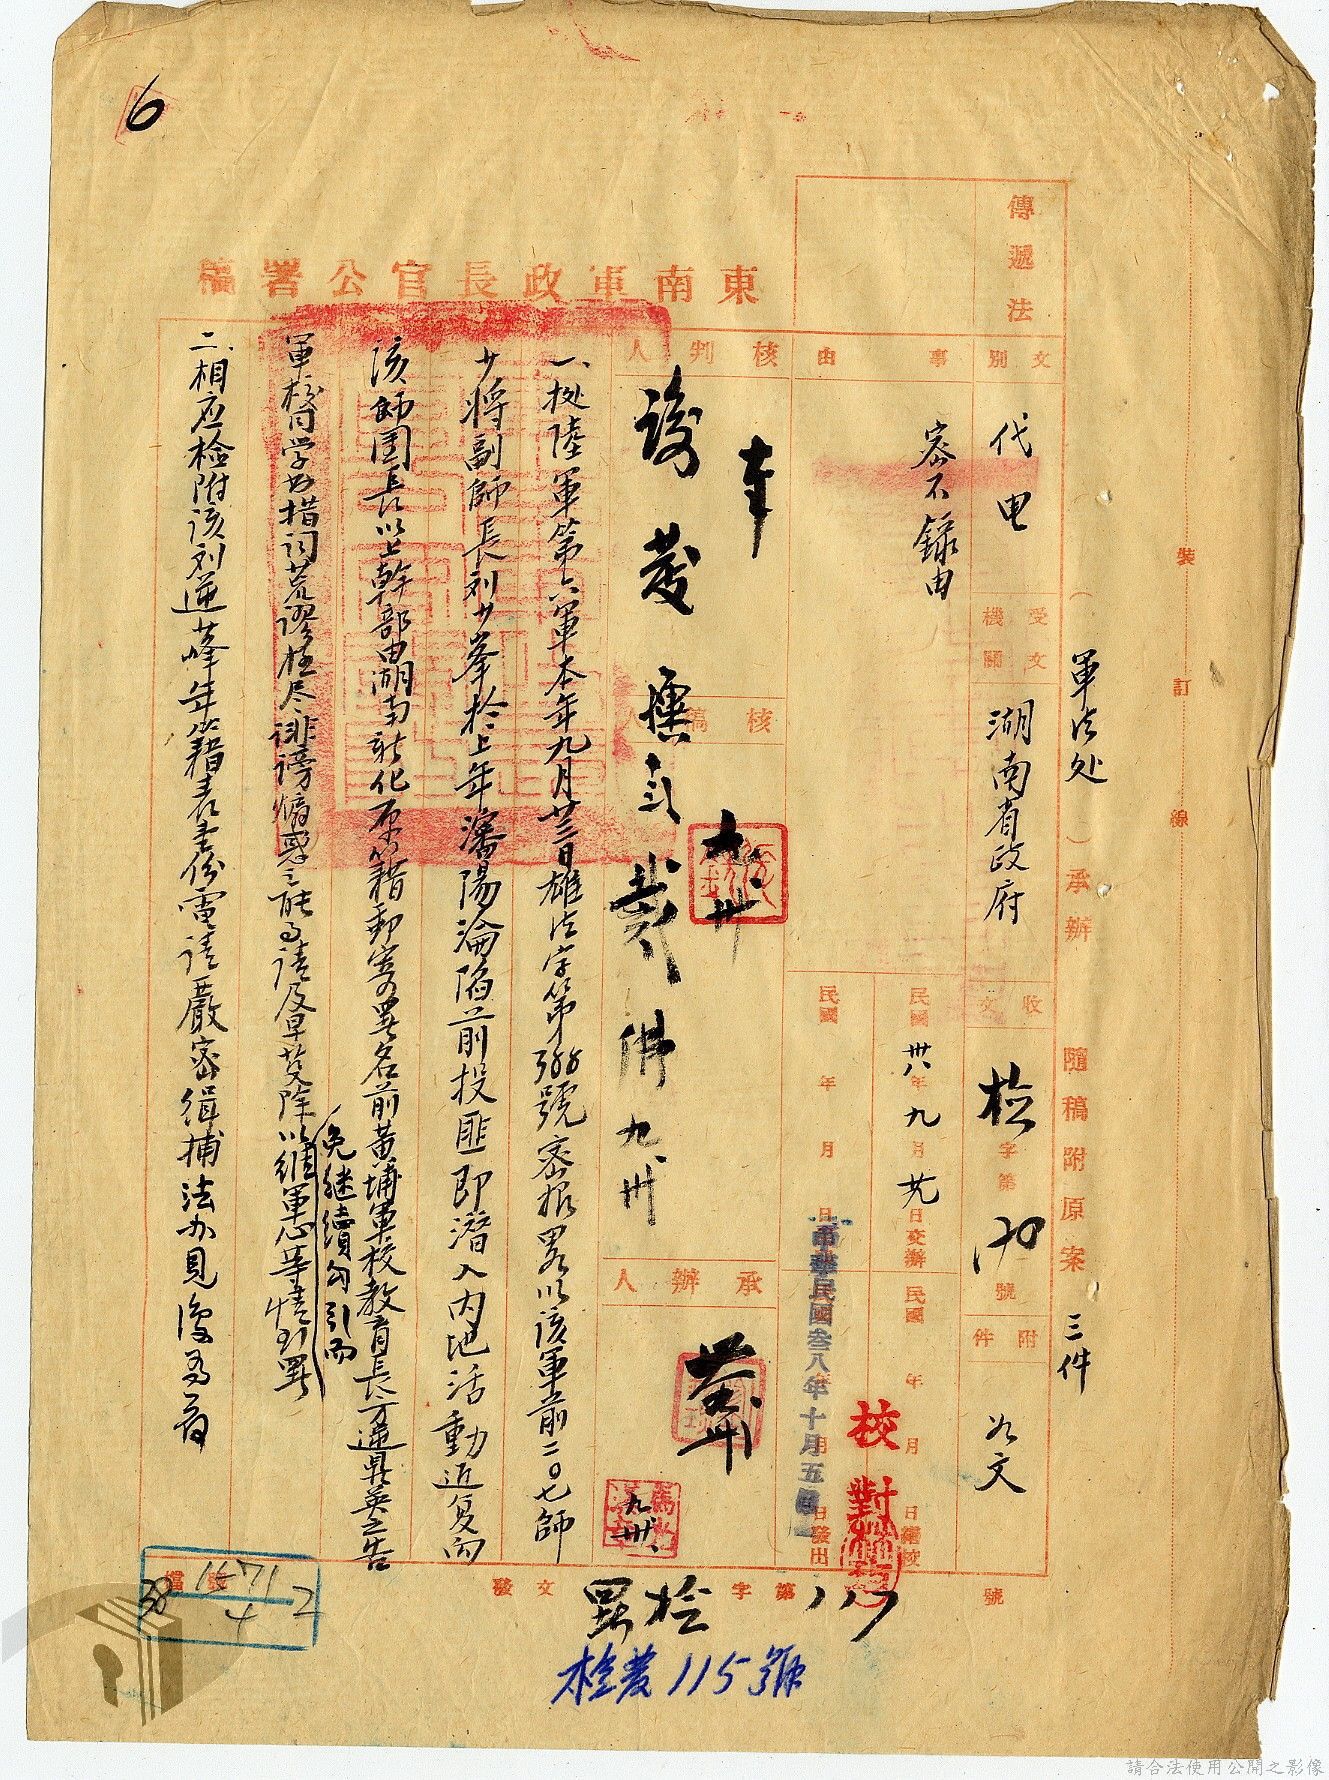 6
傳遞法
東南軍政長官公署稿
裝訂線
（軍法处）承辦 隨稿附原案 三件
文別 代电
受文機關 湖南省政府
收文 檢字第 號
附件 如文
事由
密不錄由
民國卅八年九月 日交辦
民國 年 月 日繕校
民國 年 月 日發出
中華民國叁八年十月五日
校對
核判人
核稿人
承辦人
九卅
九卅
一、据陸軍第六軍本年九月廿三日雄法字第588號密报畧以该軍前二〇七師
少將副師長刘少峯於上年瀋陽淪陷前投匪即潛入內地活動近复向
该師團長以上幹部由湖南新化原籍郵寄署名前黃埔軍校教育長方逆鼎英之告
軍校同学書措词荒謬極尽誹謗煽惑之能事请及早芟除以維軍心等情到署
免继續勾引而
二、相应检附该刘逆 峰年籍表壹份電请嚴密緝捕法办見復為荷
發文 署检字第 115 號
檔號
38
1571
4
2
检發115號
請合法使用公開之影像